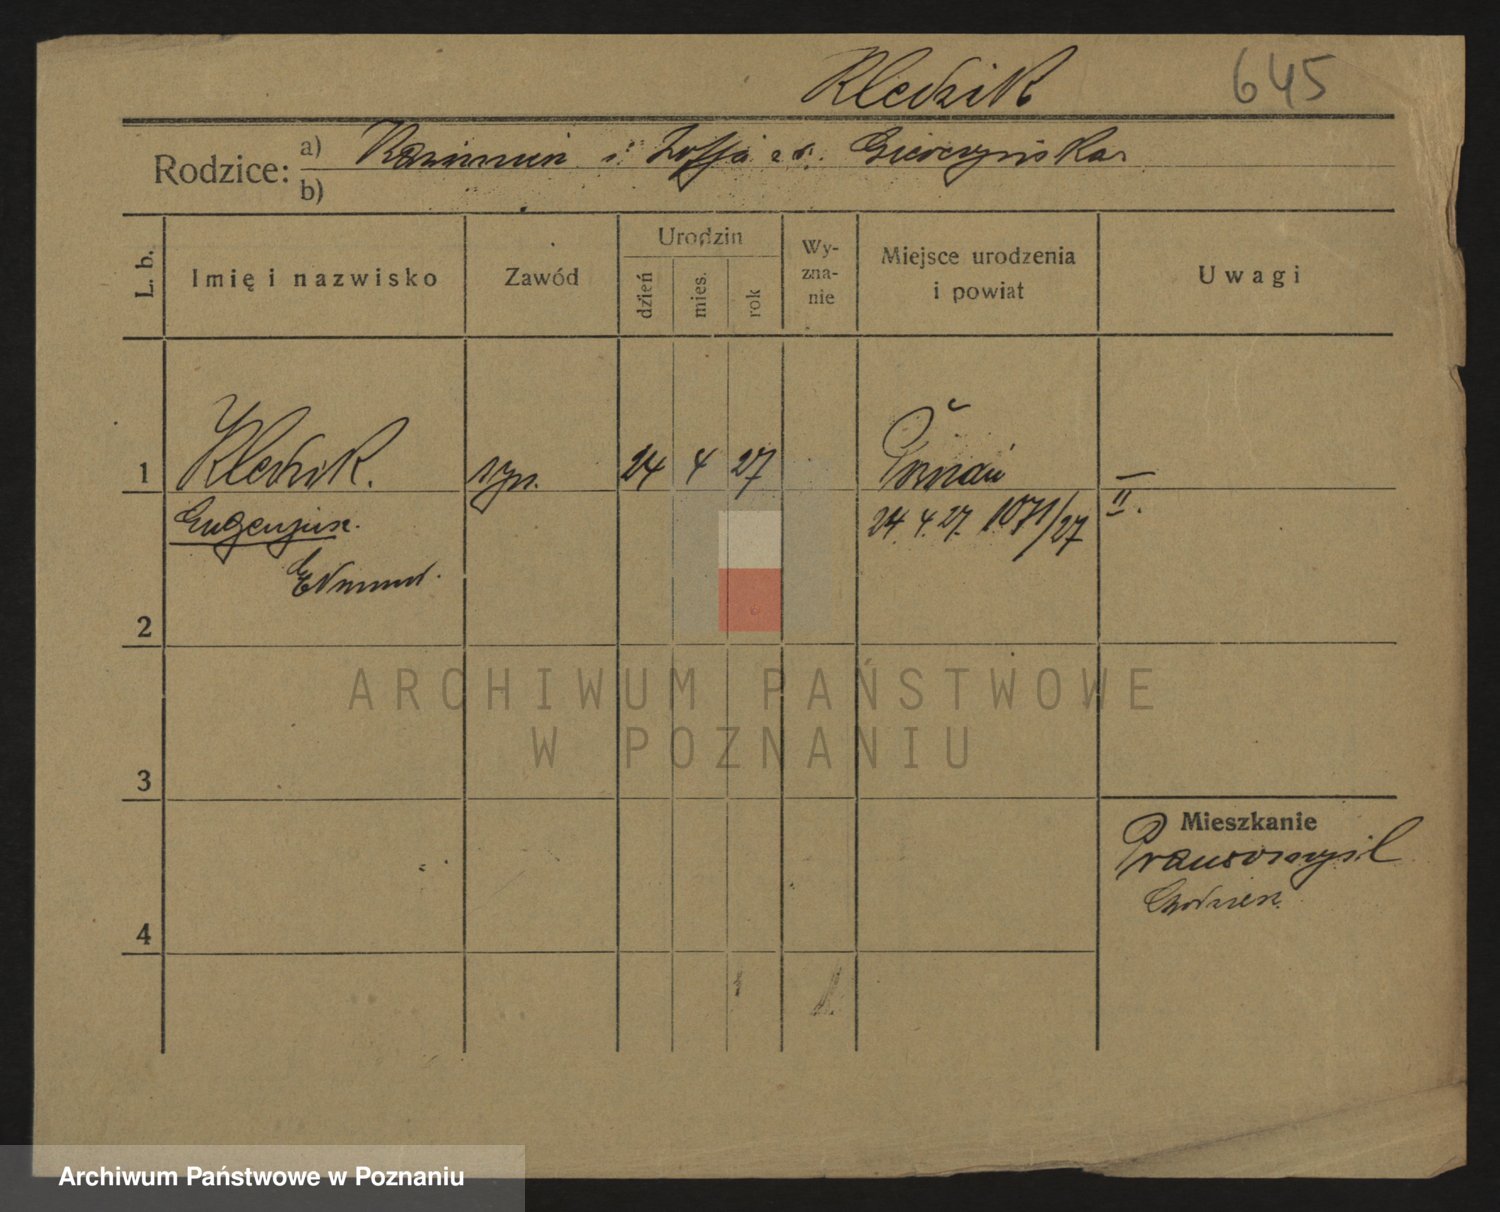 Kledzik 645
Rodzice: a) Kazimierz i Zofja z d. 
b)
L. b.
Imię i nazwisko
Zawód
Urodzin
dzień
mies.
rok
Wy-
zna-
nie
Miejsce urodzenia
i powiat
Uwagi
1 Kledzik. syn. 24 4 27 Poznań —
Eugenjusz. 24. 4. 27. 1071/27 II.
Edmund.
2
ARCHIWUM PAŃSTWOWE
W POZNANIU
3
Mieszkanie
4
Archiwum Państwowe w Poznaniu